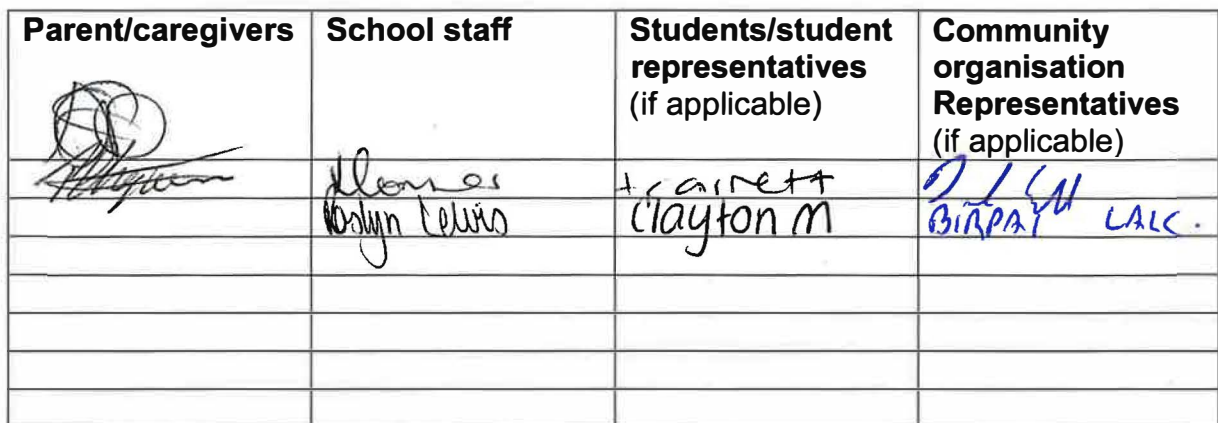 Parent/caregivers
School staff
Students/student
representatives
(if applicable)
Community
organisation
Representatives
(if applicable)
Roslyn Lewis
Clayton M
BIRPAI LALC.